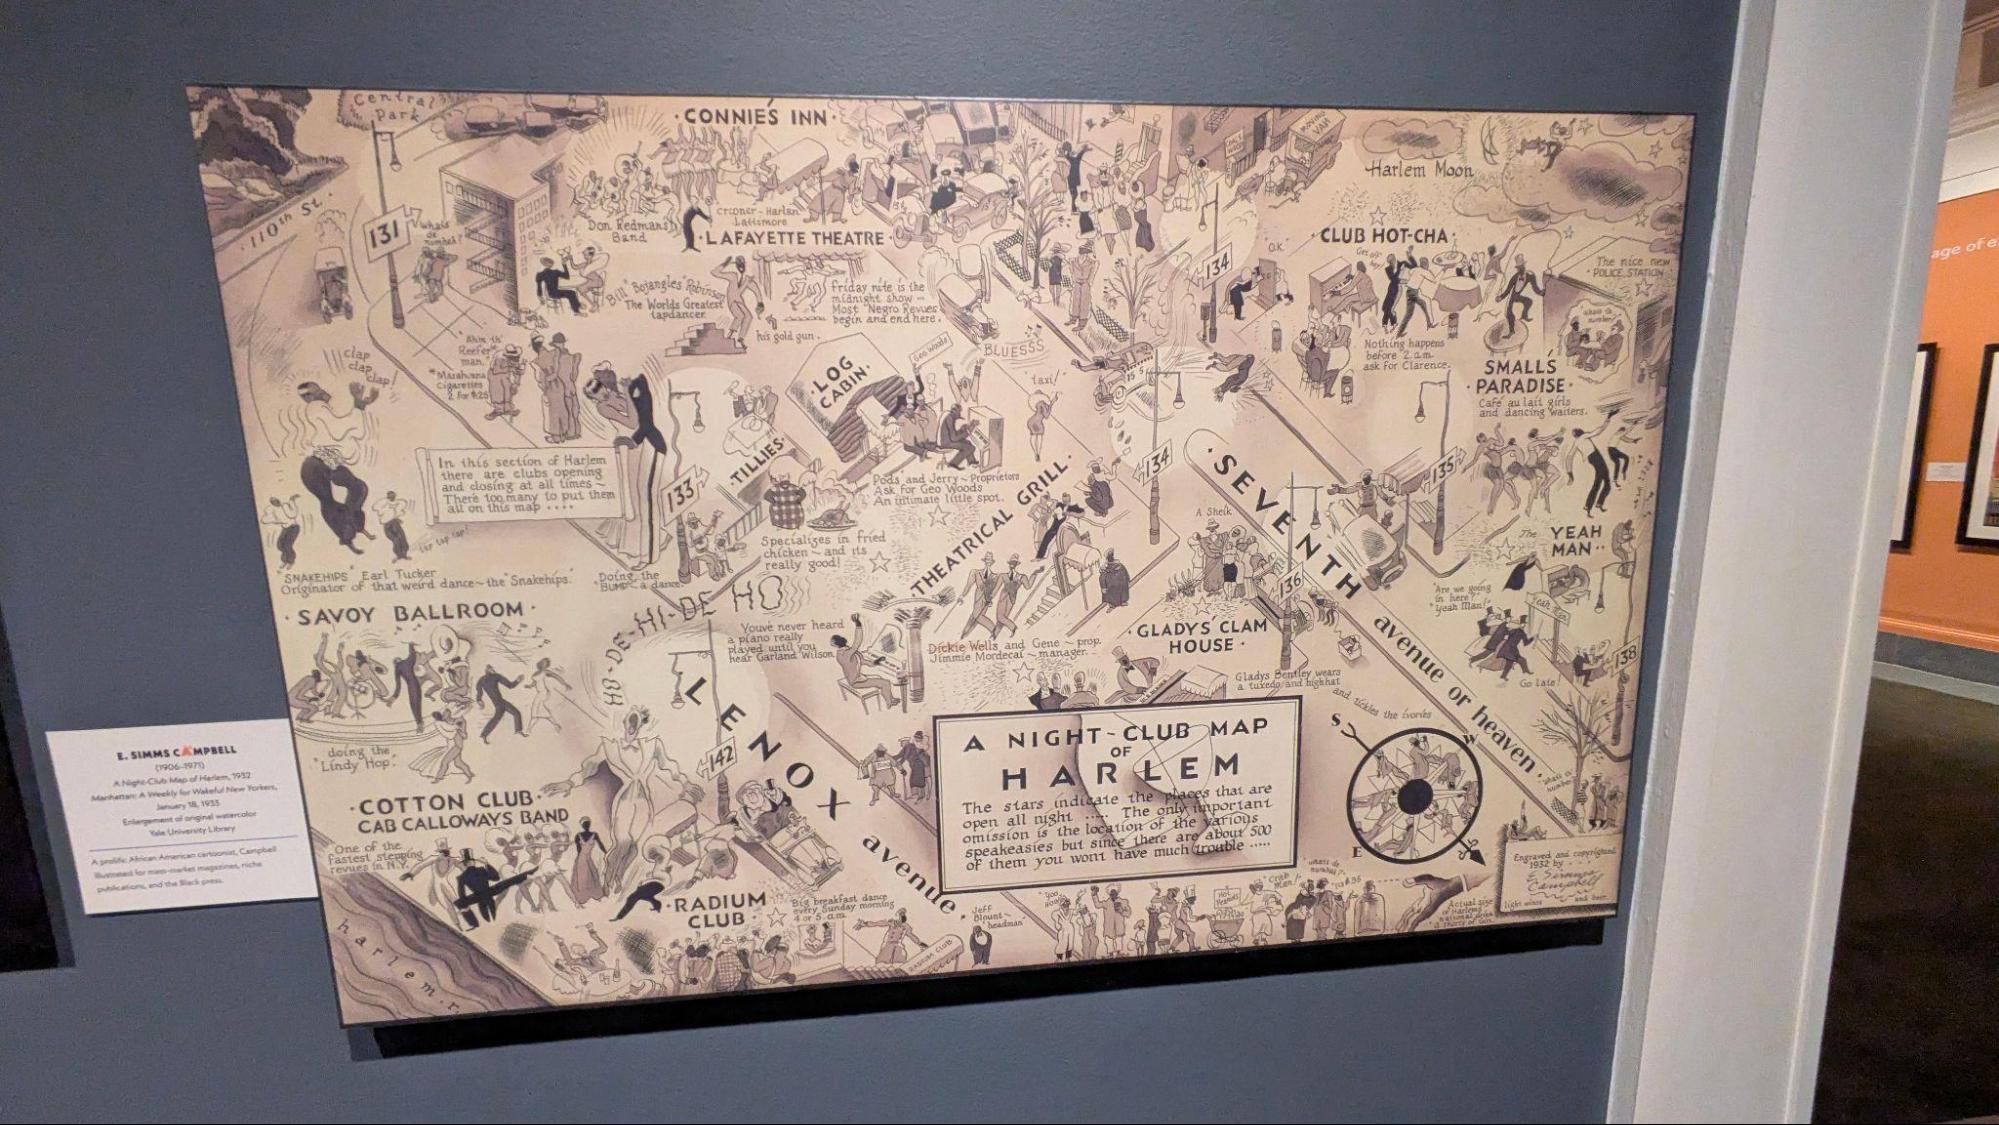 Central
Park
110th St.
131
"Whats
de
number?"
·CONNIE'S INN·
Don Redman's
Band
Crooner-Harlan
Lattimore
·LAFAYETTE THEATRE·
Bill "Bojangles" Robinson
The Worlds Greatest
tapdancer.
his gold gun.
Friday nite is the
midnight show —
Most "Negro Revues"
begin and end here.
MOVING
VAN
Harlem Moon
134
O.K.
·CLUB HOT-CHA·
Nothing happens
before 2 a.m.
ask for Clarence.
The nice new
·POLICE STATION·
SMALL'S
·PARADISE·
Café au lait girls
and dancing waiters.
"Ahm th'
Reefer
man."
"Marahuana
Cigarettes
2 for $.25
clap
clap
clap!
In this section of Harlem
there are clubs opening
and closing at all times~
There too many to put them
all on this map ····
tap tap tap!
"SNAKEHIPS" Earl Tucker
Originator of that weird dance~the "Snakehips."
"Doing the
BUMP"~a dance.
133
·TILLIES·
Specializes in fried
chicken~and its
really good!
LOG
CABIN·
Geo Woods
BLUESSS
"taxi!"
Pods and Jerry~Proprietors
Ask for Geo Woods
An intimate little spot.
·THEATRICAL GRILL·
Dickie Wells and Gene~prop.
Jimmie Mordecai~manager.
134
·SEVENTH
avenue or heaven·
135
A Sheik
136
·GLADYS' CLAM
HOUSE·
Gladys Bentley wears
a tuxedo and high hat
and tickles the ivories
The YEAH
MAN··
"Are we going
in here?"
"Yeah Man!"
138
Go late!
·SAVOY BALLROOM·
doing the
"Lindy Hop".
HO-DE-HI-DE HO
Youve never heard
a piano really
played until you
hear Garland Wilson.
LENOX avenue
142
·COTTON CLUB·
CAB CALLOWAYS BAND
One of the
fastest stepping
revues in N.Y.
·RADIUM
CLUB·
Big breakfast dance
every Sunday morning
4 or 5 a.m.
RADIUM CLUB
Jeff
Blount~
"headman"
harlem r.
A NIGHT~CLUB MAP
OF
HARLEM
The stars indicate the places that are
open all night ····. The only important
omission is the location of the various
speakeasies but since there are about 500
of them you wont have much trouble ·····
S
W
E
Hot
Peanuts
"Crab
Man!"
Actual size
of Harlem's
national drink
Engraved and copyrighted
1932 by ···
E Simms
Campbell
light wines
and beer
E. SIMMS CAMPBELL
(1906–1971)
A Night-Club Map of Harlem, 1932
Manhattan: A Weekly for Wakeful New Yorkers,
January 18, 1933
Enlargement of original watercolor
Yale University Library
A prolific African American cartoonist, Campbell
illustrated for mass-market magazines, niche
publications, and the Black press.
age of